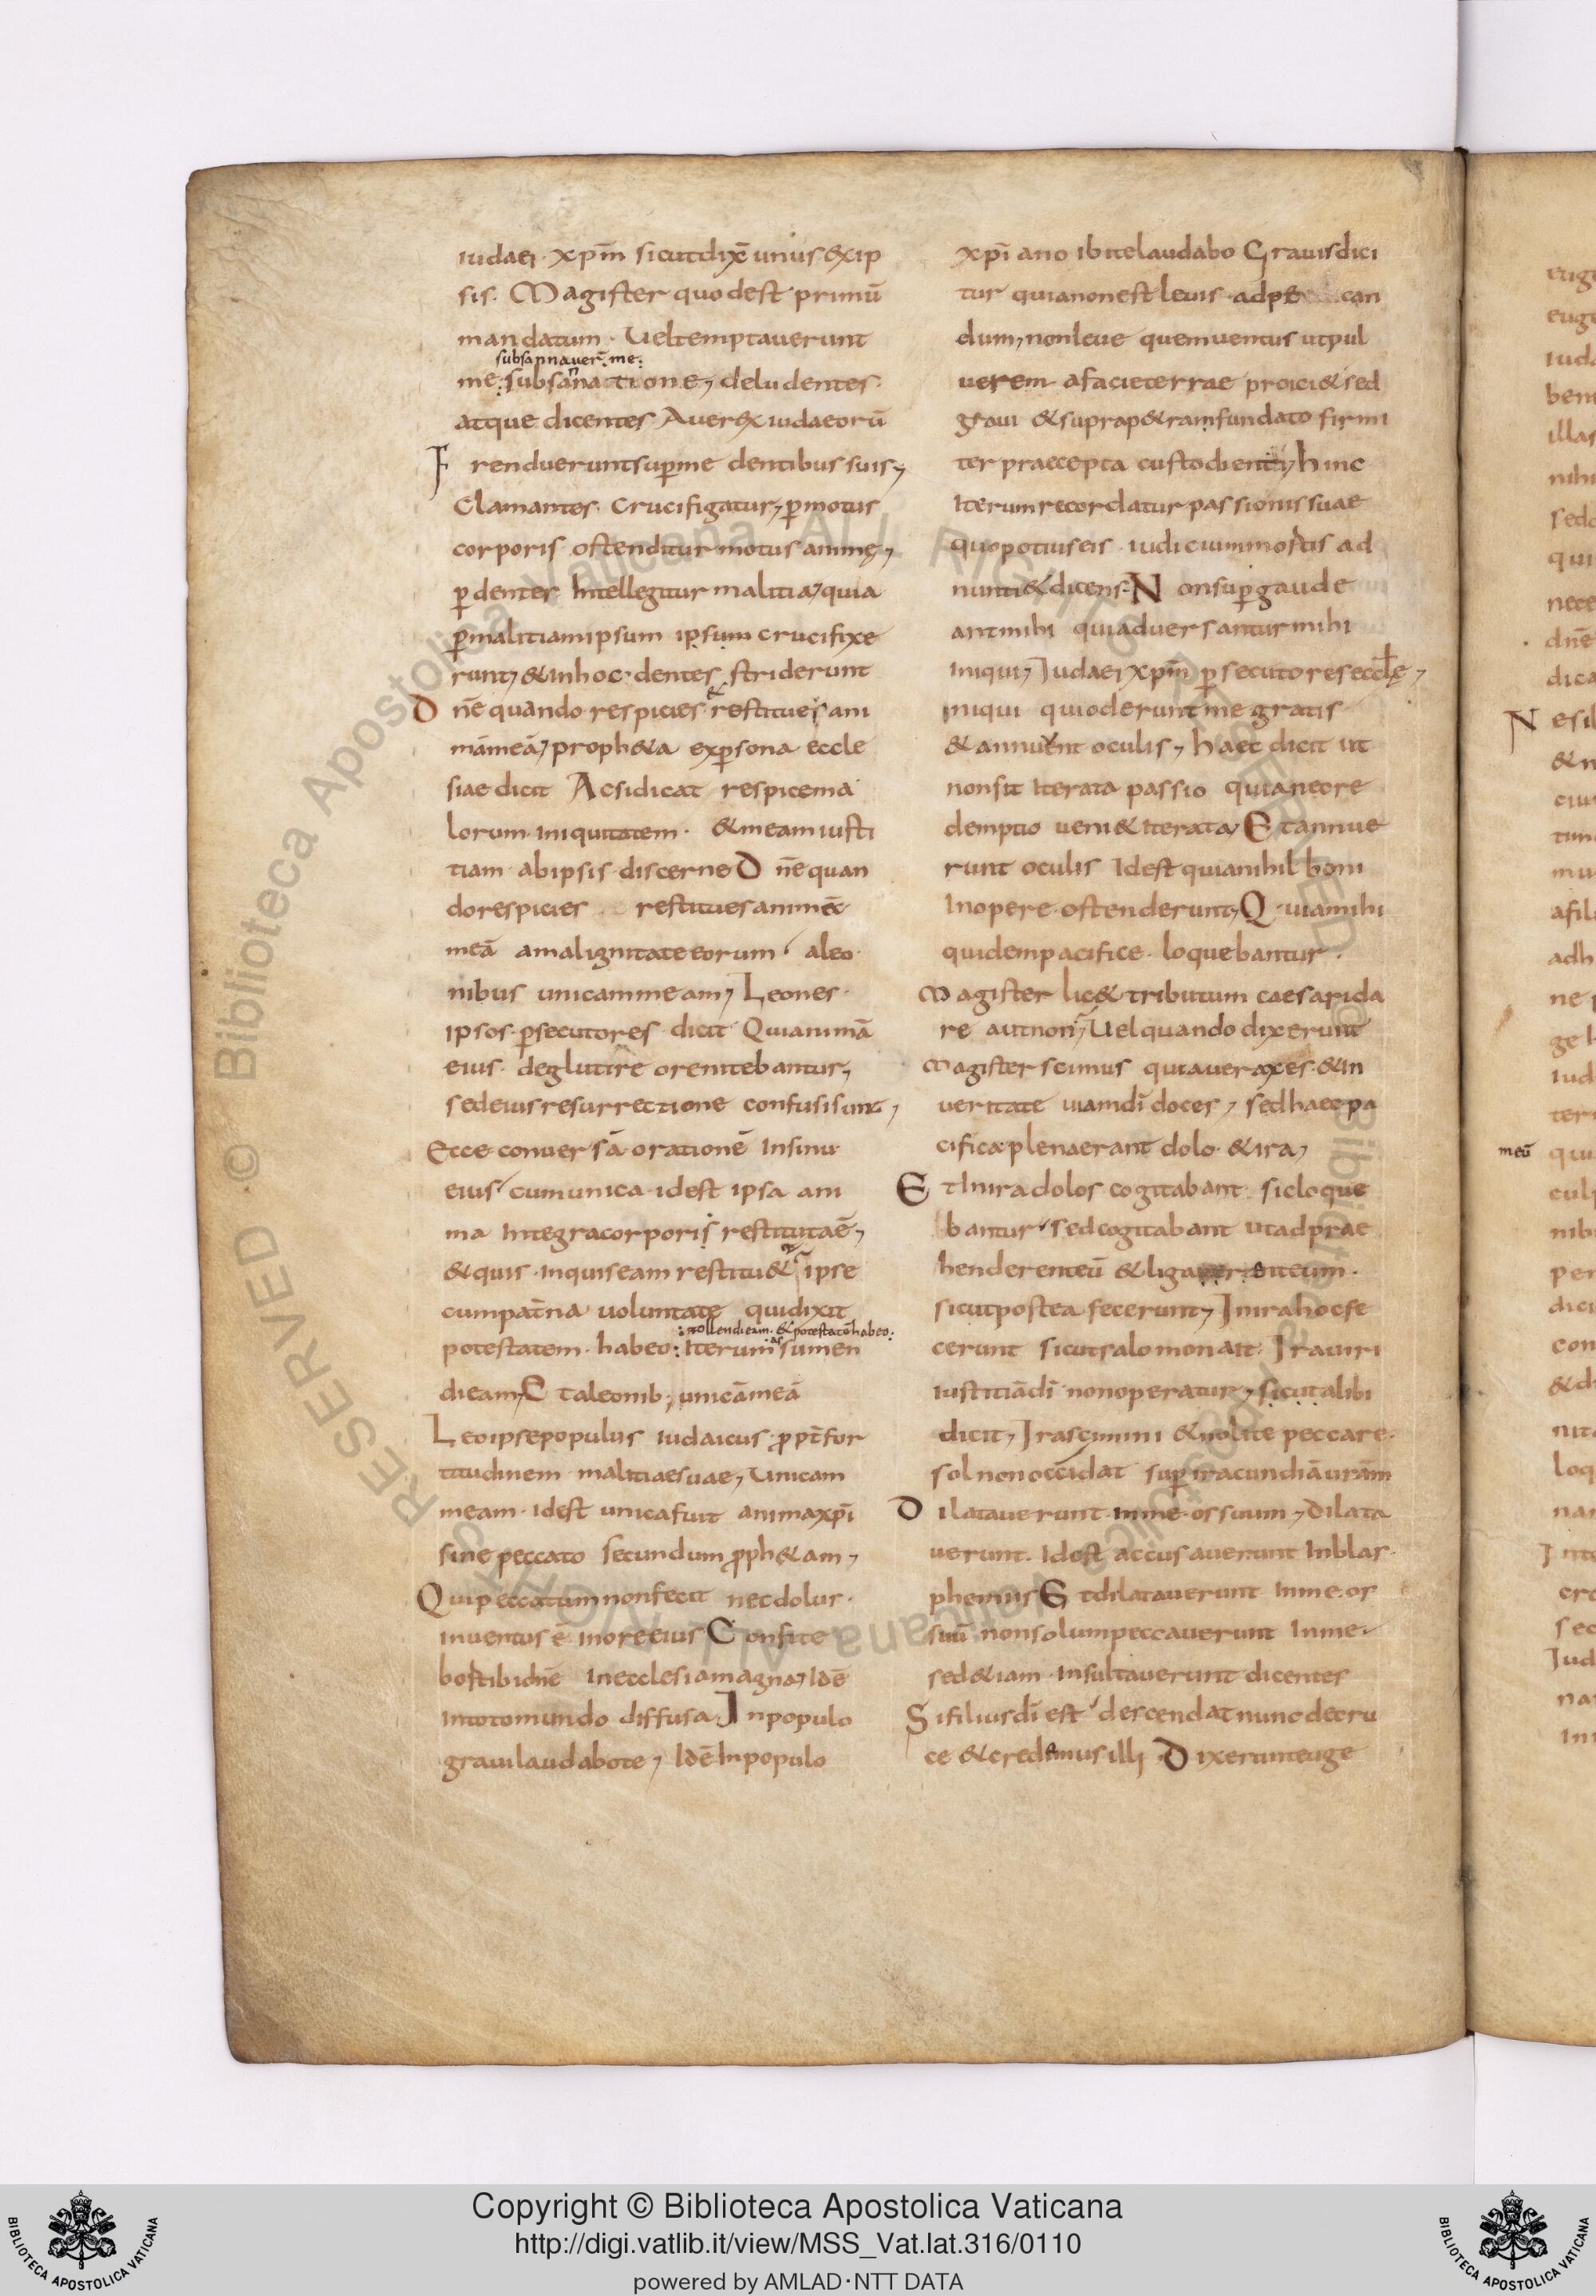 iudaei · xp̄m sicut dix̄ unus & xip
sis. Magister quod est primū
mandatum · Uel temptauerunt
subsannauer̄ me:
me: subsannatione, deludentes
atque dicentes Aue rex iudaeorū
Frenduerunt sup̄ me dentibus suis,
Clamantes. Crucifigatur, p̄ motus
corporis ostenditur motus animę,
p̄ dentes Intellegitur malitia, quia
p̄ malitiam ipsum ipsum crucifixe
runt, & in hoc · dentes striderunt
Dn̄e quando respicies · restitues ani
mā meā, proph&a ex p̄sona eccle
siae dicit Ac si dicat respice ma
lorum iniquitatem · & meam iusti
tiam · ab ipsis · discerne Dn̄e quan
do respicies restitues animē
meā a malignitate eorum a leo
nibus unicam meam, Leones ·
ipsos · p̄secutores dicit Qui animā
eius · deglutire ore nitebantur,
sed eius resurrectione confusi sunt,
Ecce conuersā orationē In sinu
eius cum unica · id est ipsa ani
ma Integra corporis restituta ē,
& quis · inquis eam restitu& ipse
cum patr̄na uoluntate qui dixit
: tollendi eam · & potestatē habeo:
potestatem · habeo: Iterum sumen
di eam, Et a leonib; unicā meā
Leo ipse populus iudaicus · p̄pt̄ for
titudinem · malitiae suae, Unicam
meam · id est unica fuit anima xp̄i
sine peccato secundum p̄ph&am,
Qui peccatum non fecit nec dolus ·
inuentus ē in ore eius Confite
bor tibi dn̄e In ecclesia magna, Id ē
in toto mundo diffusa. In populo
graui laudabo te, Id ē In populo
xp̄iano ibi te laudabo Grauis dici
tur quia non est leuis · ad can
dum, non leue quem uentus ut pul
uerem a facie terrae proici& sed
graui & supra p&ram fundato firmi
ter praecepta custodiente, hinc
Iterum recordatur passionis suae
quo potius eis · iudicium mortis ad
nunti& dicens. Non sup̄gaude
ant mihi qui aduersantur mihi
iniqui, Iudaei xp̄m p̄secutores ecclę,
iniqui qui oderunt me gratis
& annuunt oculis, haec dicit ut
non sit Iterata passio quia nec re
demptio ueni& Iterata, Et annue
runt oculis Id est quia nihil boni
In opere · ostenderunt, Quia mihi
quidem pacifice · loquebantur ·
Magister lic& tributum caesari da
re aut non, Uel quando dixerunt
Magister scimus quia uerax es · & in
ueritate uiam dī doces, sed haec pa
cifica plena erant dolo · & ira,
Et In ira dolos cogitabant · sic loque
bantur sed cogitabant ut adprae
henderent eū & ligarent eum ·
sicut postea fecerunt, In ira hoc fe
cerunt sicut salomon ait: Ira uiri
iustitiā dī non operatur, sicut alibi
dicit, Irascimini & nolite peccare ·
sol non occidat sup̄ iracundiā urām
Dilatauerunt · in me · os suum, Dilata
uerunt. Id est accusauerunt In blas
phemiis Et dilatauerunt in me · os
suū non solum peccauerunt In me ·
sed &iam · Insultauerunt dicentes
Si filius dī est descendat nunc de cru
ce & credimus illi · Dixerunt euge
meū
Copyright © Biblioteca Apostolica Vaticana
http://digi.vatlib.it/view/MSS_Vat.lat.316/0110
powered by AMLAD·NTT DATA